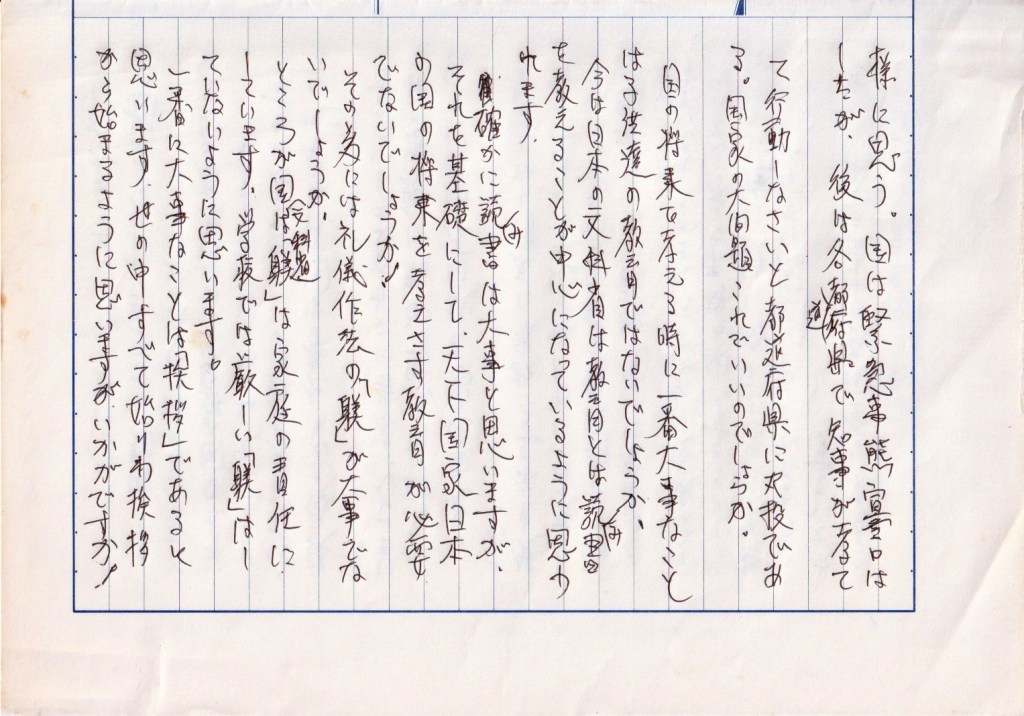 様に思う。国は緊急事態宣言は
したが、後は各都道府県で知事が考えて
て行動しなさいと都道府県に丸投であ
る。国家の大問題これでいいのでしょうか。
国の将来を考える時に一番大事なこと
は子供達の教育ではないでしょうか。
今は日本の文科省は教育とは読み書
を教えることが中心になっているように思わ
れます。
確かに読み書は大事と思いますが、
それを基礎にして、天下国家日本
の国の将来を考えさす教育が必要
でないでしょうか!
その為には礼儀作法の「躾」が大事でな
いでしょうか。
ところが国は「躾」は家庭の責任に
しています。学校では厳しい「躾」はし
ていないように思います。
一番に大事なことは「挨拶」であると
思います。世の中すべて始りわ挨拶
から始まるように思いますが、いかがですか!